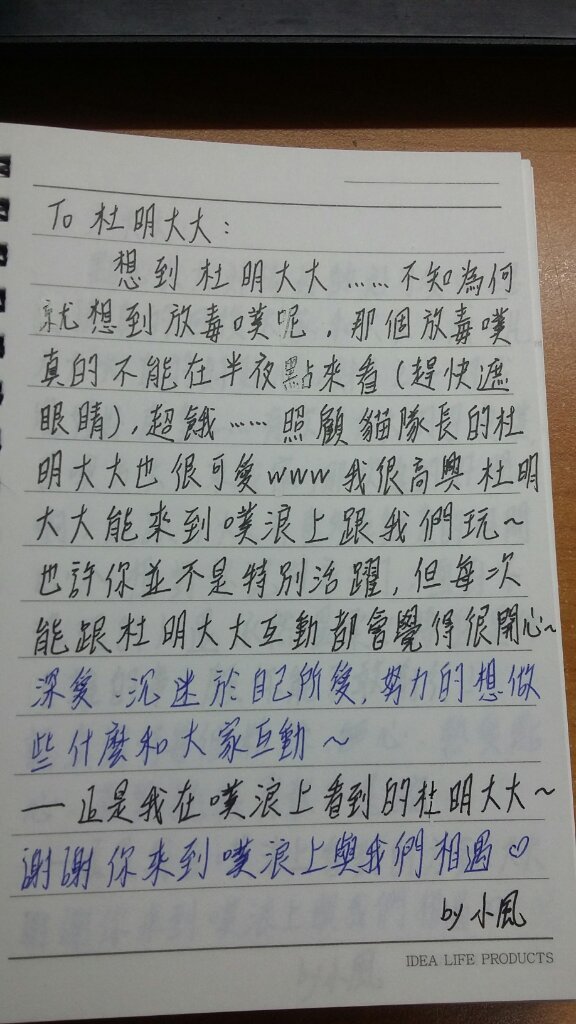 To 杜明大大：
想到杜明大大……不知為何
就想到放毒噗呢，那個放毒噗
真的不能在半夜點來看(趕快遮
眼睛)，超餓……照顧貓隊長的杜
明大大也很可愛www我很高興杜明
大大能來到噗浪上跟我們玩~
也許你並不是特別活躍，但每次
能跟杜明大大互動都會覺得很開心~
深愛、沉迷於自己所愛，努力的想做
些什麼和大家互動~
—這是我在噗浪上看到的杜明大大~
謝謝你來到噗浪上與我們相遇♡
by 小風
IDEA LIFE PRODUCTS